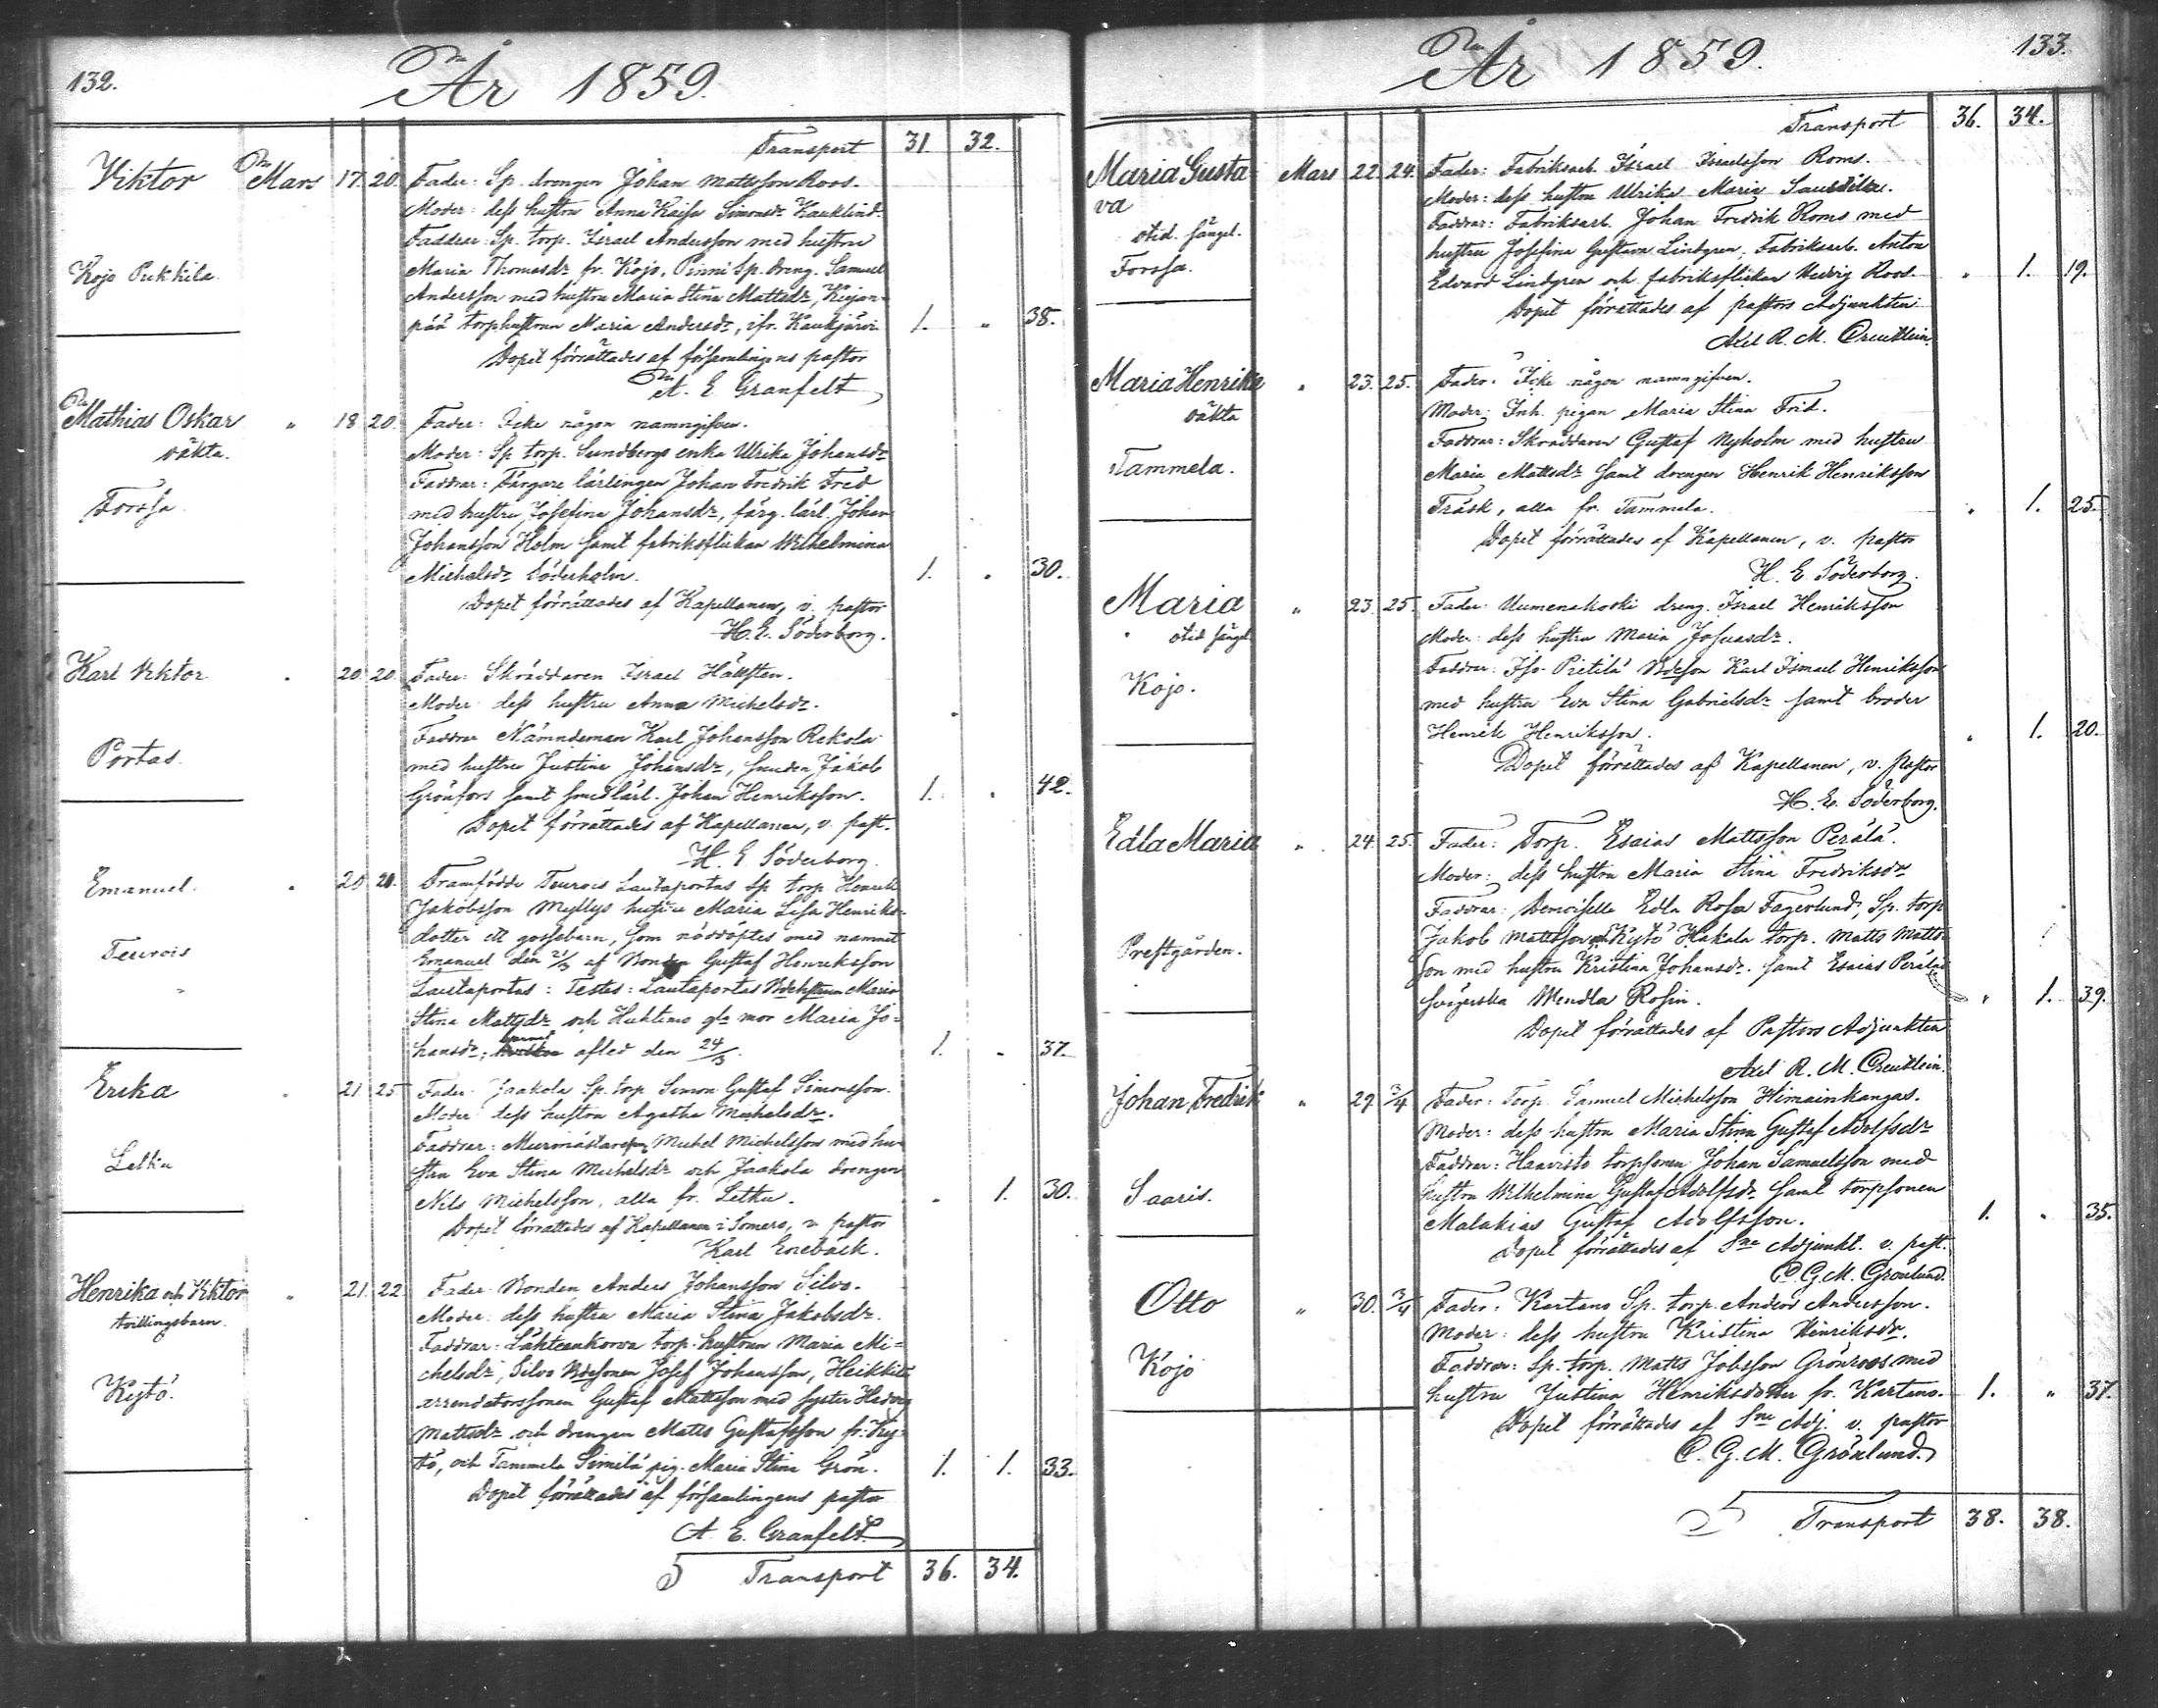 132.
År 1859.
Transport 31. 32.
Viktor Mars 17. 20. Fader: Sp. drengen Johan Mattsson Roos.
Moder: dess hustru Anna Kaisa Simonsdr Kauklind.
Faddrar: Sp. torp. Israel Andersson med hustru
Kojo Pukkila. Maria Thomasdr fr. Kojo, Pinni Sp. dreng. Samuel
Andersson med hustru Maria Stina Mattsdr, Kojan-
pää torphustrun Maria Andersdr, ifr. Kaukjärvi 1. " 38.
Dopet förrättades af församlingens pastor
A. E. Granfelt
Mathias Oskar " 18 20. Fader: Icke någon namngifven.
oäkta. Moder: Sp. torp. Sundbergs enka Ulrika Johansdr
Faddrar: Färgare lärlingen Johan Fredrik Fred
Forssa med hustru Josefina Johansdr, färg. lärl. Johan
Johansson Holm samt fabriksflickan Wilhelmina
Michelsdr Söderholm. 1. " 30.
Dopet förrättades af Kapellanen, v. pastor
H. E. Söderborg.
Karl Viktor " 20 20 Fader: Skräddaren Israel Hällsten.
Moder: dess hustru Anna Michelsdr.
Faddrar Nämndeman Karl Johansson Rekola
Portas. med hustru Justina Johansdr, smeden Jakob
Grönfors samt smedlärl. Johan Henriksson. 1. " 42.
Dopet förrättades af Kapellanen, v. past.
H. E. Söderborg.
Emanuel. " 20 20. Framfödde Teurois Lautaportas Sp. torp. Henrik
Jakobsson Myllys hustru Maria Lisa Henriks-
dotter ett gossebarn, som nöddöptes med namnet
Teurois Emanuel den 21/3 af Bonden Gustaf Henriksson
Lautaportas: Testes: Lautaportas Bdehustrun Maria
Stina Mattsdr och Huhtimo gla mor Maria Jo-
hansdr; barnet afled den 24/3. 1. " 37.
Erika " 21 25 Fader: Jaakola Sp. torp. Simon Gustaf Simonsson.
Moder dess hustru Agatha Michelsdr.
Faddrar: Murmästaren Michel Michelsson med hu-
Letku stru Eva Stina Michelsdr och Jaakola drengen
Nils Michelsson, alla fr. Letku. " 1. 30.
Dopet förrättades af Kapellanen i Somero, v. pastor
Karl Enebäck.
Henrika och Viktor " 21. 22 Fader: Bonden Anders Johansson Silvo.
tvillingsbarn. Moder: dess hustru Maria Stina Jakobsdr.
Faddrar: Lähteenkorva torp. hustrun Maria Mi-
chelsdr, Silvo Bdesonen Josef Johansson, Heikkilä
Kystö. arrendatorssonen Gustaf Mattsson med syster Hedvig
Mattsdr och drengen Matts Gustafsson fr. Kys-
tö, och Tammela Similä pig. Maria Stina Grön. 1. 1. 33.
Dopet förrättades af församlingens pastor
A. E. Granfelt
Transport 36. 34.
133.
År 1859.
Transport 36. 34.
Maria Gusta- Mars 22. 24. Fader: Fabriksarb. Israel Israelsson Roms.
va Moder: dess hustru Ulrika Maria
otid. sängel. Faddrar: Fabriksarb. Johan Fredrik Roms med
Forssa. hustru Josefina Gustava Lindgren, Fabriksarb. Anton
Edvard Lindgren och fabriksflickan Hedvig Roos. " 1. 19.
Dopet förrättades af pastors Adjunkten
Axel R. M. Creutlein.
Maria Henrika " 23. 25. Fader: Icke någon namngifven.
oäkta Moder: Inh. pigan Maria Stina Frid.
Faddrar: Skräddaren Gustaf Nyholm med hustru
Tammela. Maria Mattsdr samt drengen Henrik Henriksson
Träsk, alla fr. Tammela. " 1. 25.
Dopet förrättades af Kapellanen, v. pastor
H. E. Söderborg.
Maria " 23. 25. Fader: Uumenakoski dreng. Israel Henriksson
otid sängel. Moder: dess hustru Maria Josuasdr.
Faddrar: Iso-Pietilä Bdeson Karl Ismael Henriksson
Kojo. med hustru Eva Stina Gabrielsdr samt broder
Henrik Henriksson. " 1. 20.
Dopet förrättades af Kapellanen, v. pastor
H. E. Söderborg.
Edla Maria " 24. 25. Fader: Torp. Esaias Mattsson Perälä.
Moder: dess hustru Maria Stina Fredriksdr
Faddrar: Demoiselle Edla Rosa Fagerlund, Sp. torp
Jakob Mattsson och Kystö Hakala torp. Matts Matts-
Prestgården. son med hustru Kristina Johansdr. samt Esaias Peräläs
svägerska Wendla Rosin. " 1. 39.
Dopet förrättades af Pastors Adjunkten
Axel R. M. Creutlein.
Johan Fredrik " 29. 3/4 Fader: Torp. Samuel Michelsson Himainkangas.
Moder: dess hustru Maria Stina Gustaf Adolfsdr
Faddrar: Haavisto torpsonen Johan Samuelsson med
Saaris. hustru Wilhelmina Gustaf Adolfsdr samt torpsonen
Malakias Gustaf Adolfsson. 1. " 35.
Dopet förrättades af Sne Adjunkt. v. past.
C. G. M. Grönlund.
Otto " 30. 3/4 Fader: Kartano Sp. torp. Anders Andersson.
Moder: dess hustru Kristina Henriksdr.
Kojo Faddrar: Sp. torp. Matts Jobsson Grönroos med
hustru Justina Henriksdotter fr. Kartano. 1. " 37.
Dopet förrättades af Sne Adj. v. pastor
C. G. M. Grönlund.
Transport 38. 38.